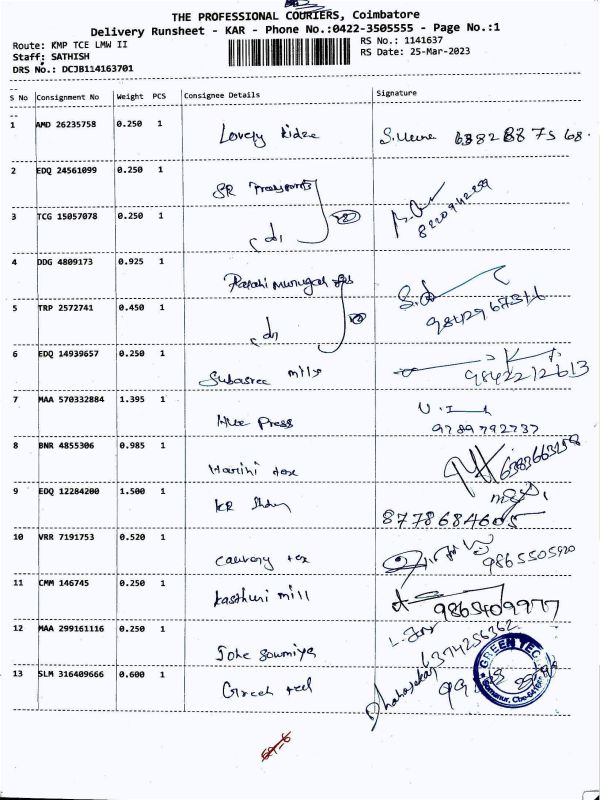 THE PROFESSIONAL COURIERS, Coimbatore
Delivery Runsheet - KAR - Phone No.:0422-3505555 - Page No.:1
Route: KMP TCE LMW II RS No.: 1141637
Staff: SATHISH RS Date: 25-Mar-2023
DRS No.: DCJB114163701
S No Consignment No Weight PCS Consignee Details Signature
1 AMD 26235758 0.250 1 Lovely
2 EDQ 24561099 0.250 1 SR Transports
3 TCG 15057078 0.250 1
4 DDG 4809173 0.925 1 murugan
5 TRP 2572741 0.450 1
6 EDQ 14939657 0.250 1 Subasree mills 9842212613
7 MAA 570332884 1.395 1 Hue Press 9789792737
8 BNR 4855306 0.985 1 Harini tex
9 EDQ 12284200 1.500 1 KR 8778684605
10 VRR 7191753 0.520 1 cauvery tex 9865505920
11 CMM 146745 0.250 1 kasthuri mill 9865409977
12 MAA 299161116 0.250 1 sowmiya 6374256362
13 SLM 316409666 0.600 1 Green
GREEN TECH